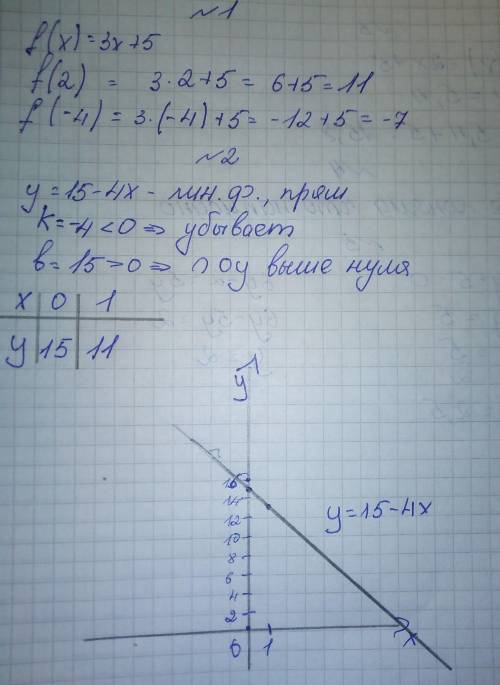 №1
f(x)=3x+5
f(2) = 3·2+5= 6+5=11
f(-4)= 3·(-4)+5= -12+5= -7
№2
y=15-4x - лин. ф., прям
k=-4<0 => убывает
b=15>0 => ∩ оу выше нуля
x 0 1
y 15 11
y
16
14
12
10
8
6
4
2
0 1 x
y=15-4x